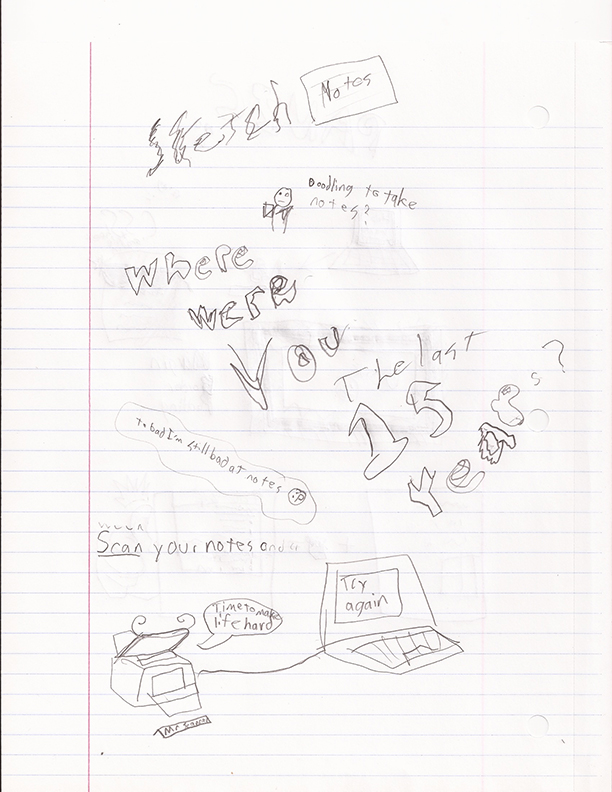 Sketch Notes
Doodling to take
notes?
where
were
You
The last
15
Years?
to bad I'm still bad at notes :P
Scan your notes and
Time to make
life hard
Try
again
Mr